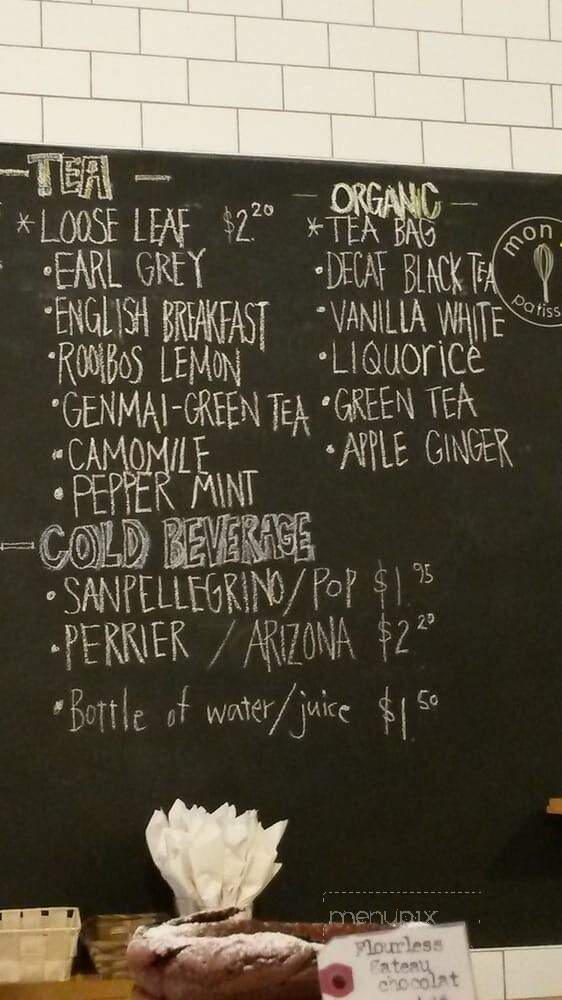 TEA
* LOOSE LEAF $2.20
• EARL GREY
• ENGLISH BREAKFAST
• ROOIBOS LEMON
• GENMAI-GREEN TEA
• CAMOMILE
• PEPPER MINT
ORGANIC
* TEA BAG
• DECAF BLACK TEA
• VANILLA WHITE
• LIQUORICE
• GREEN TEA
• APPLE GINGER
mon
patiss
COLD BEVERAGE
• SANPELLEGRINO/POP $1.95
• PERRIER / ARIZONA $2.20
• Bottle of water/juice $1.50
menupix
Flourless
Gateau
chocolat